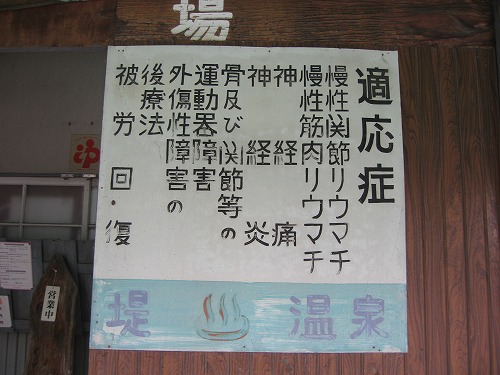 場
適応症
慢性関節リウマチ
慢性筋肉リウマチ
神経痛
神経炎
骨及び関節等の
運動器障害
外傷性障害の
後療法
被労回・復
堤温泉
ゆ
営業中